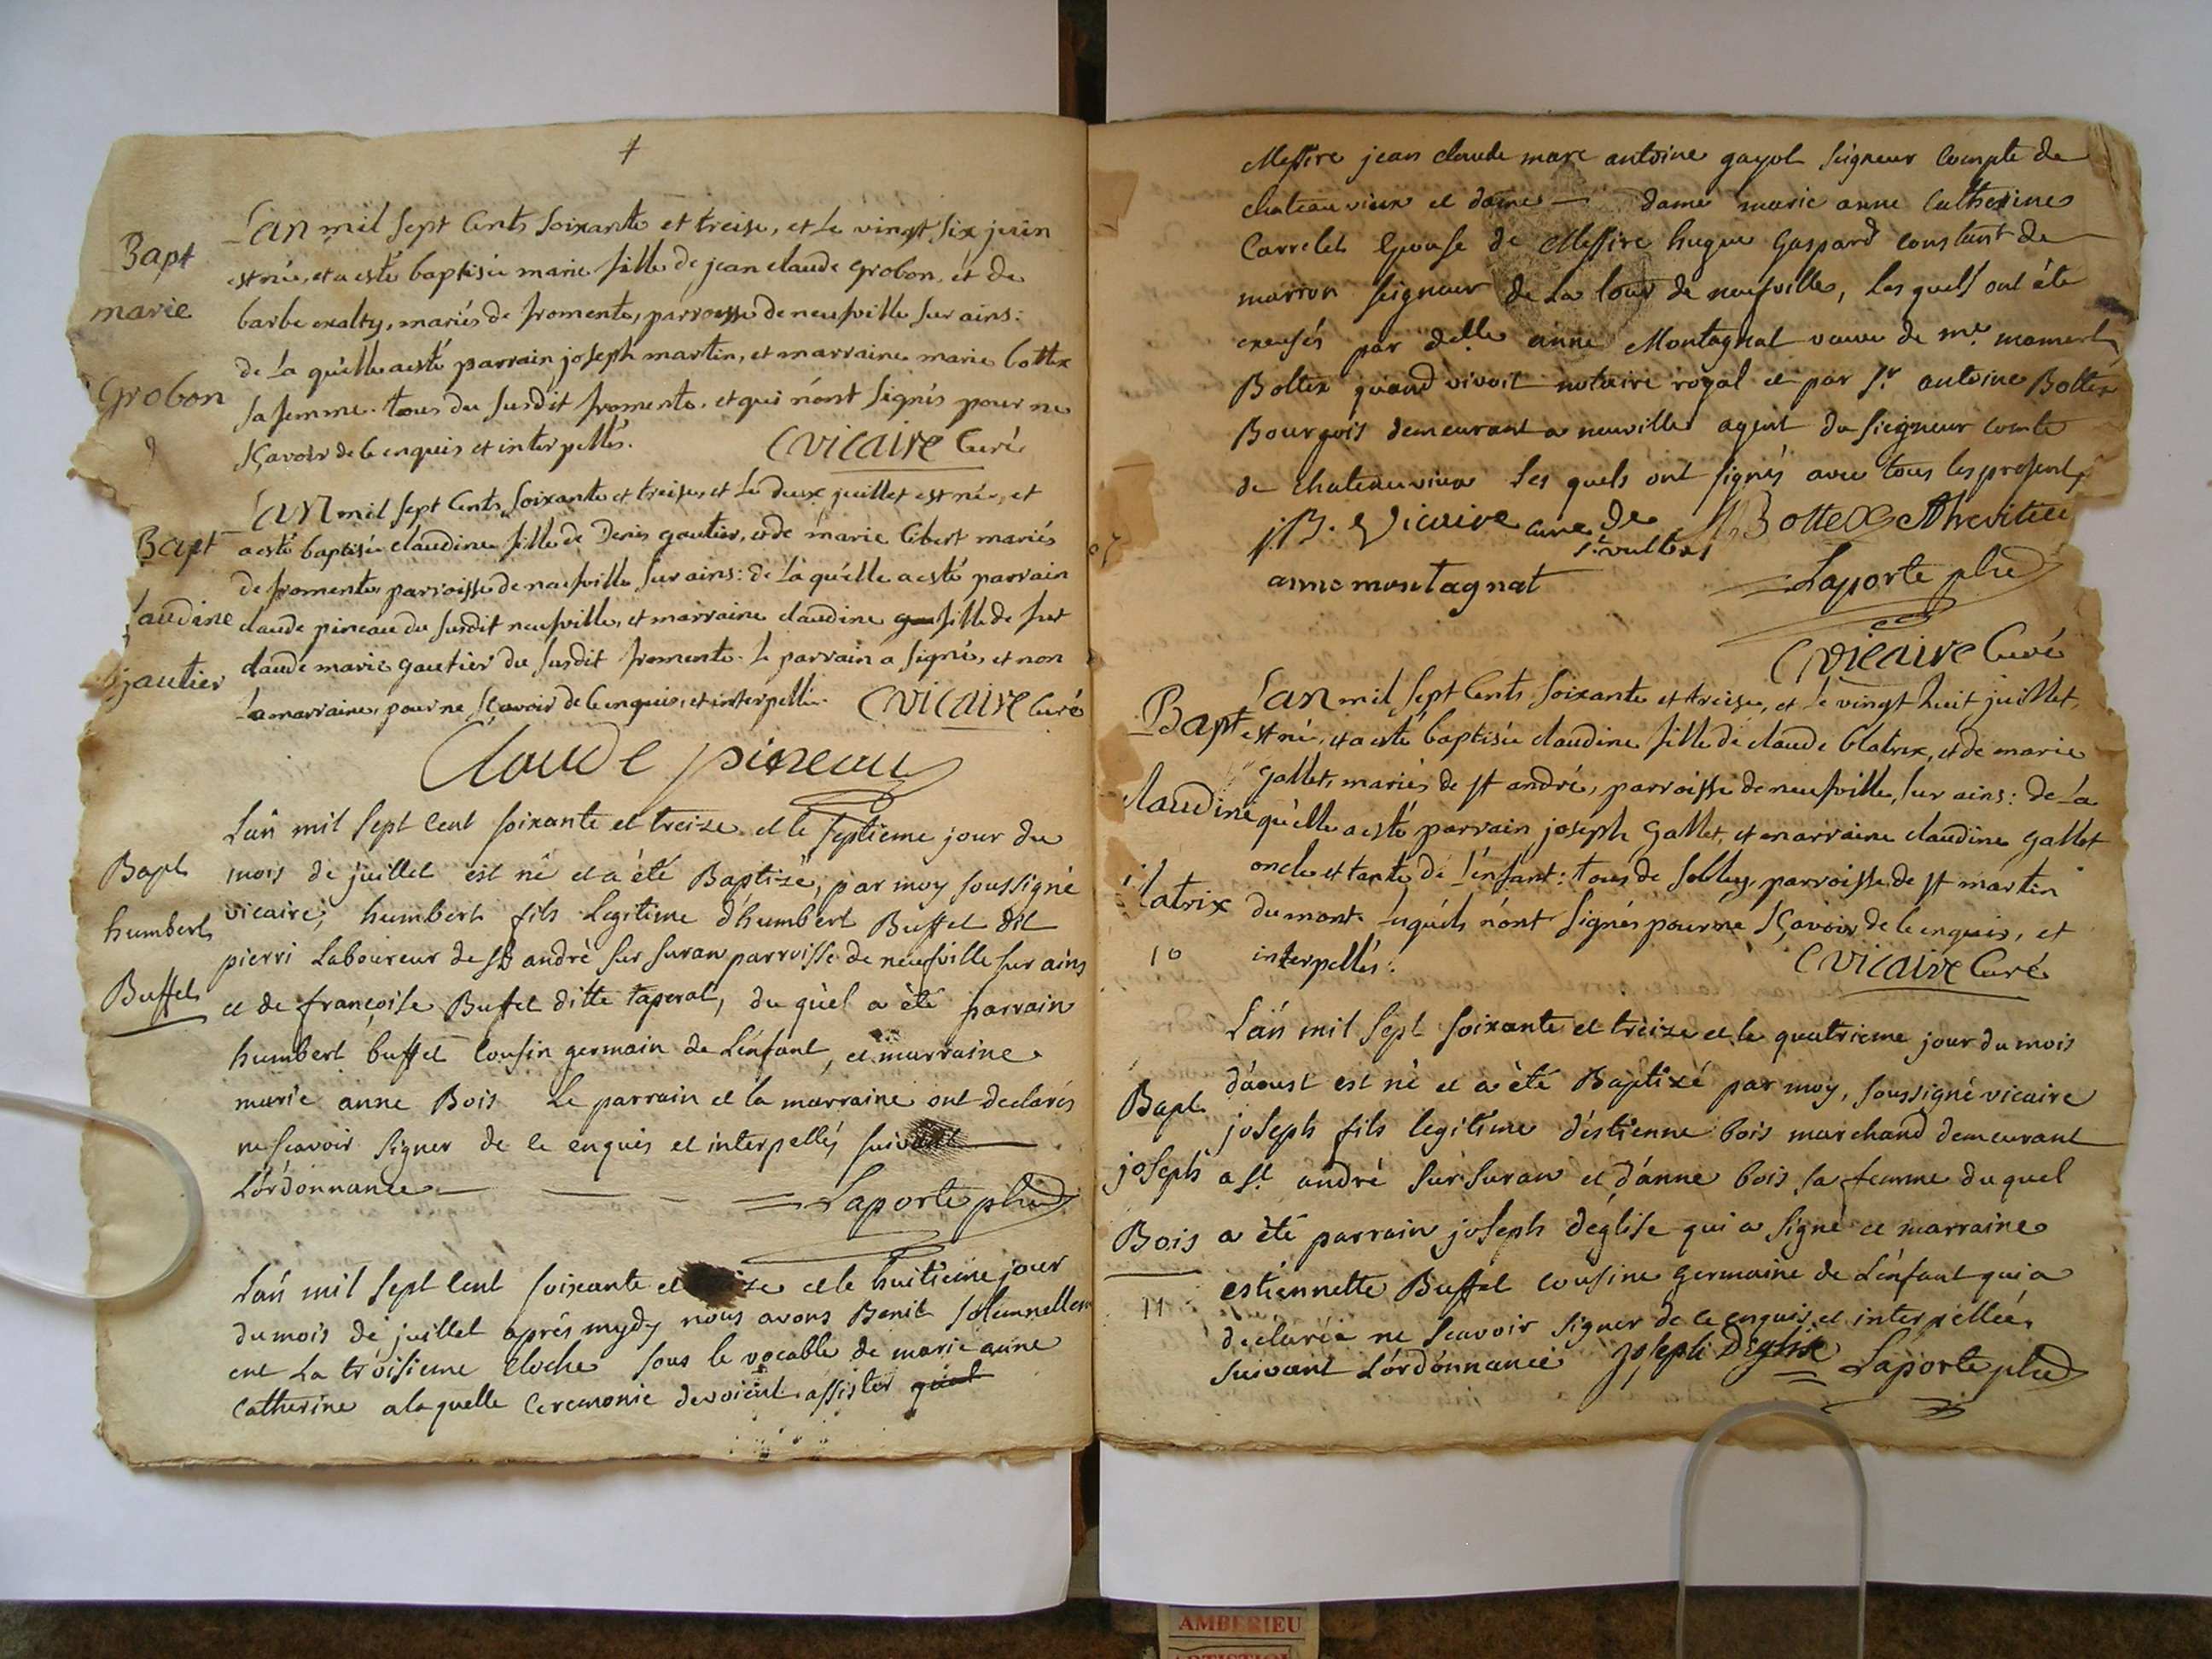 Bapt
marie
Grobon
9
L'an mil sept Cents soixante et treise, et Le vingt six juin
est née, et a esté baptisée marie fille de jean claude Grobon, et de
barbe exalty, mariés de fromente, parroisse de neufville sur ains:
de La quelle a esté parrain joseph martin, et marraine marie bottex
sa femme. tous du susdit fromente. et qui n'ont signés pour ne
sçavoir de ce enquis et interpellés. C vicaire Curé
Bapt
laudine
gautier
L'an mil sept Cents soixante et treise, et Le deux juillet est née, et
a esté baptisée claudine fille de Denis gautier, et de marie Cibert mariés
de fromente parroisse de neufville sur ains: de La quelle a esté parrain
claude pineau du susdit neufville, et marraine claudine fille de feu
claude marie gautier du susdit fromente. Le parrain a signé, et non
La marraine, pour ne sçavoir de ce enquise, et interpellée. C vicaire Curé
Claude pineau
Bapt
humbert
Buffet
L'an mil sept cent soixante et treize et le septieme jour du
mois de juillet est né et a été Baptizé, par moy soussigné
vicaire, humbert fils Legitime d'humbert Buffet dit
pierri Laboureur de st andré sur suran parroisse de neufville sur ains
et de françoise Buffet ditte taperal, du qu'el a été parrain
humbert buffet Cousin germain de L'enfant, et marraine
marie anne Bois Le parrain et la marraine ont declarés
ne scavoir signer de ce enquis et interpellés suivant
L'ordonnance Laporte ptre
L'an mil sept cent soixante et ize et le huitieme jour
du mois de juillet après mydy nous avons Benit solemnellem
ent La troisieme Cloche sous le vocable de marie anne
Catherine a la quelle Ceremonie devoient assister
Messire jean claude marc antoine gayot seigneur Compte de
chateauvieux et dame dame marie anne Catherine
Carrelet Epouse de Messire hugue Gaspard constant de
marron seigneur de La tour de neufville, Les quels ont été
excusés par delle anne Montagnat veuve de me. mamert
Bottex quand vivoit notaire royal et par sr. antoine Bottex
Bourgois demeurant a neuville agent du sieigneur comte
de chateauvieux Les quels ont signés avec tous les presents
j. B. Vicaire curé de st. vulbas Bottex
anne montagnat Laporte ptre
C vicaire Curé
Bapt
claudine
latrix
10
L'an mil sept Cents soixante et treise, et Le vingt huit juillet,
est née, et a esté baptisée claudine fille de claude blatrix, et de marie
gallet, mariés de st andré, parroisse de neufville, sur ains: de La
quelle a esté parrain joseph Gallet, et marraine claudine gallet
oncle et tante de l'enfant: tous de Solley, parroisse de st martin
du mont. Lesquels n'ont signés pour ne sçavoir de ce enquis, et
interpellés. C vicaire Curé
Bapt
joseph
Bois
11
L'an mil sept soixante et treize et le quatrieme jour du mois
d'aoust est né et a été Baptizé par moy, soussigné vicaire
joseph fils legitime d'estienne bois marchand demeurant
a st. andré sur suran et d'anne bois sa femme du quel
a été parrain joseph deglise qui a signé et marraine
estiennette Buffet cousine germaine de L'enfant qui a
declarée ne scavoir signer de ce enquis et interpellée,
suivant L'ordonnance joseph Deglise Laporte ptre
AMBERIEU